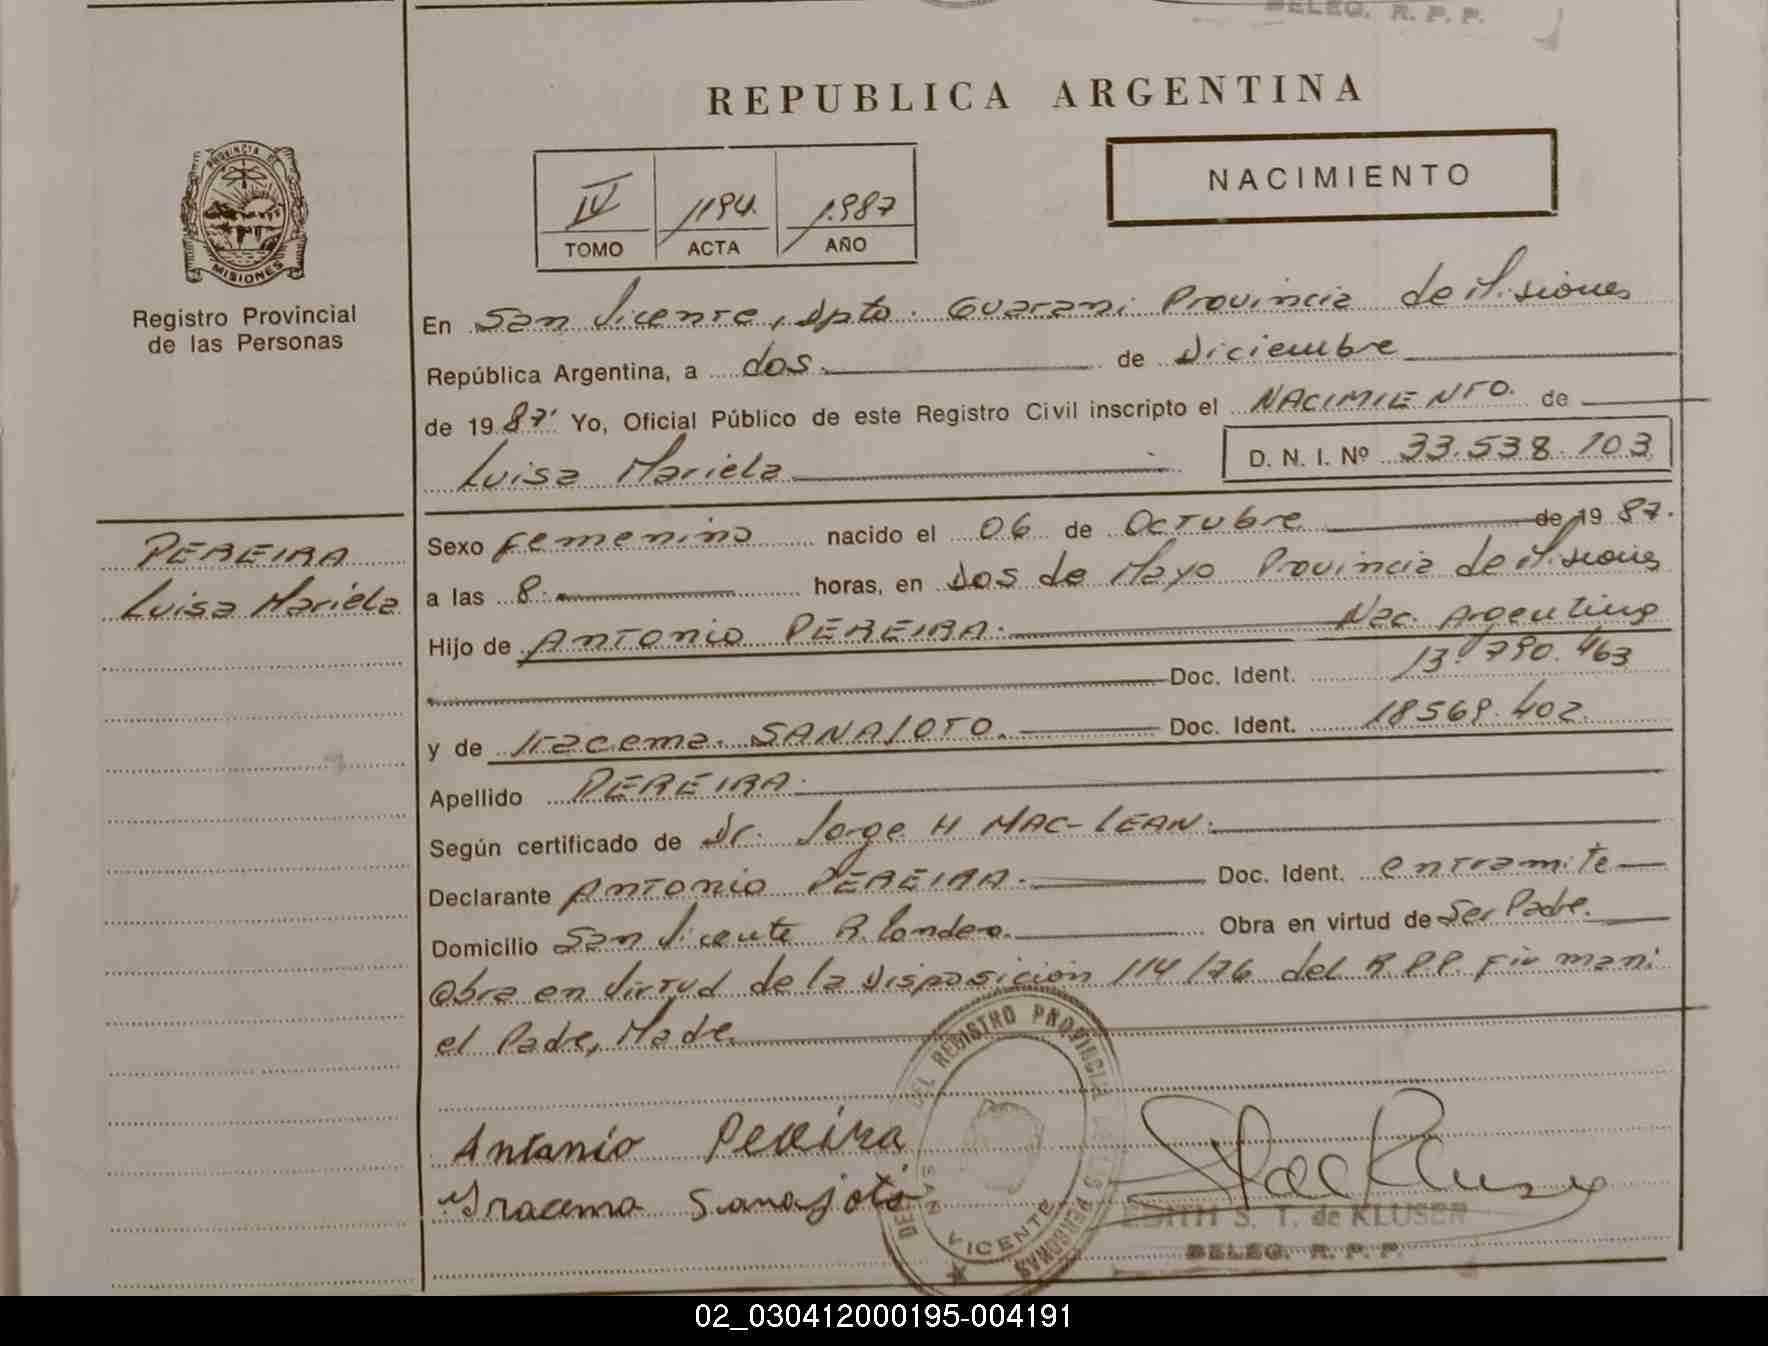 DELEG. R. P. P.
REPUBLICA ARGENTINA
PROVINCIA DE
MISIONES
Registro Provincial
de las Personas
IV 1194. 1.987
TOMO ACTA AÑO
NACIMIENTO
En San Vicente, Dpto. Guarani Provincia de Misiones
República Argentina, a dos. de Diciembre
de 19 87. Yo, Oficial Público de este Registro Civil inscripto el NACIMIENTO. de
Luisa Mariela D. N. I. Nº 33.538.103
PEREIRA
Luisa Mariela
Sexo femenino nacido el 06 de Octubre de 19 87.
a las 8. horas, en Dos de Mayo Provincia de Misiones
Hijo de ANTONIO PEREIRA. Nac. Argentino
Doc. Ident. 13.790.463
y de Iracema. SANAJOTO. Doc. Ident. 18569.402.
Apellido PEREIRA.
Según certificado de Dr. Jorge H MAC-LEAN.
Declarante ANTONIO PEREIRA. Doc. Ident. en tramite
Domicilio San Vicente Obra en virtud de Ser Padre.
Obra en virtud de la Disposición 114/76 del R P P
el Padre, Madre
Antonio Pereira
Iracema Sanajoto
DEL REGISTRO PROVINCIAL DE LAS PERSONAS
SAN VICENTE
EDITH S. T. de KLUSER
DELEG. R. P. P.
02_030412000195-004191